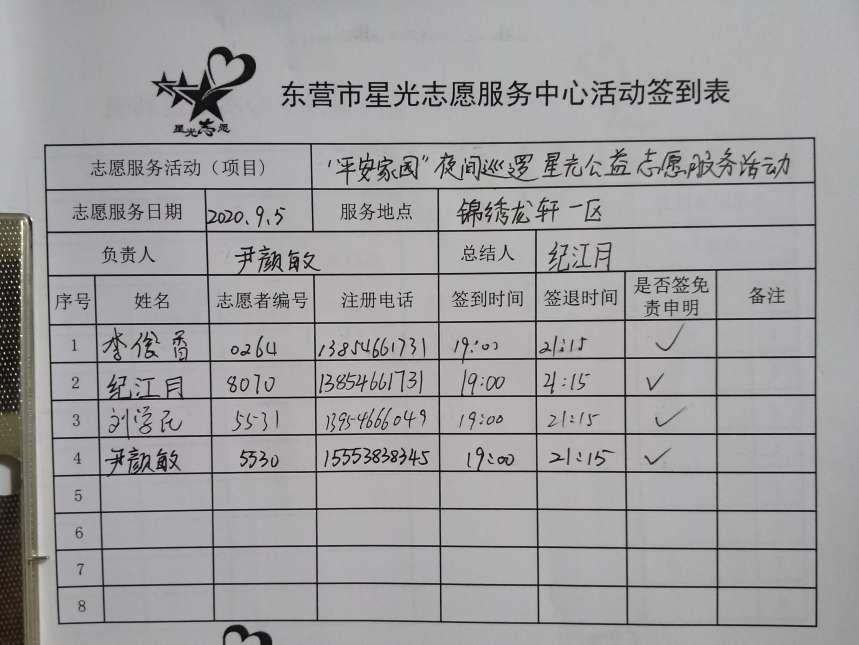 星光志愿
东营市星光志愿服务中心活动签到表
志愿服务活动（项目） "平安家园"夜间巡逻星光公益志愿服务活动
志愿服务日期 2020.9.5 服务地点 锦绣龙轩一区
负责人 尹颜敏 总结人 纪江月
序号 姓名 志愿者编号 注册电话 签到时间 签退时间 是否签免责申明 备注
1 李俊香 0264 13854661731 19:00 21:15 ✓
2 纪江月 8070 13854661731 19:00 21:15 ✓
3 刘学民 5531 13954666049 19:00 21:15 ✓
4 尹颜敏 5530 15553838345 19:00 21:15 ✓
5
6
7
8